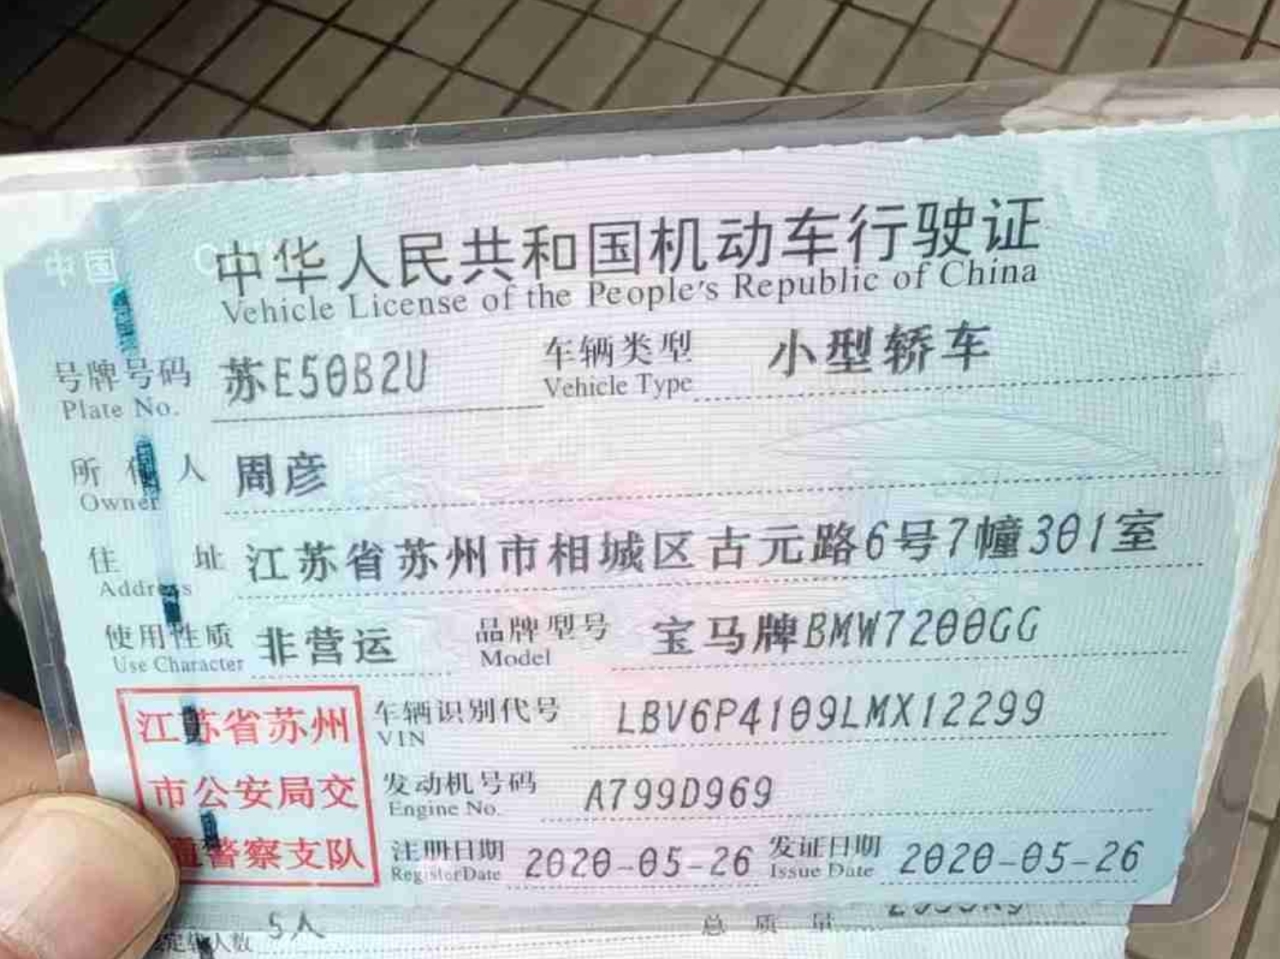 中国
中华人民共和国机动车行驶证
Vehicle License of the People's Republic of China
号牌号码 苏E50B2U 车辆类型 小型轿车
Plate No. Vehicle Type
所有人 周彦
Owner
住址 江苏省苏州市相城区古元路6号7幢301室
Address
使用性质 非营运 品牌型号 宝马牌BMW7200GG
Use Character Model
江苏省苏州
市公安局交
通警察支队
车辆识别代号 LBV6P4109LMX12299
VIN
发动机号码 A799D969
Engine No.
注册日期 2020-05-26 发证日期 2020-05-26
Register Date Issue Date
定载人数 5人 总质量